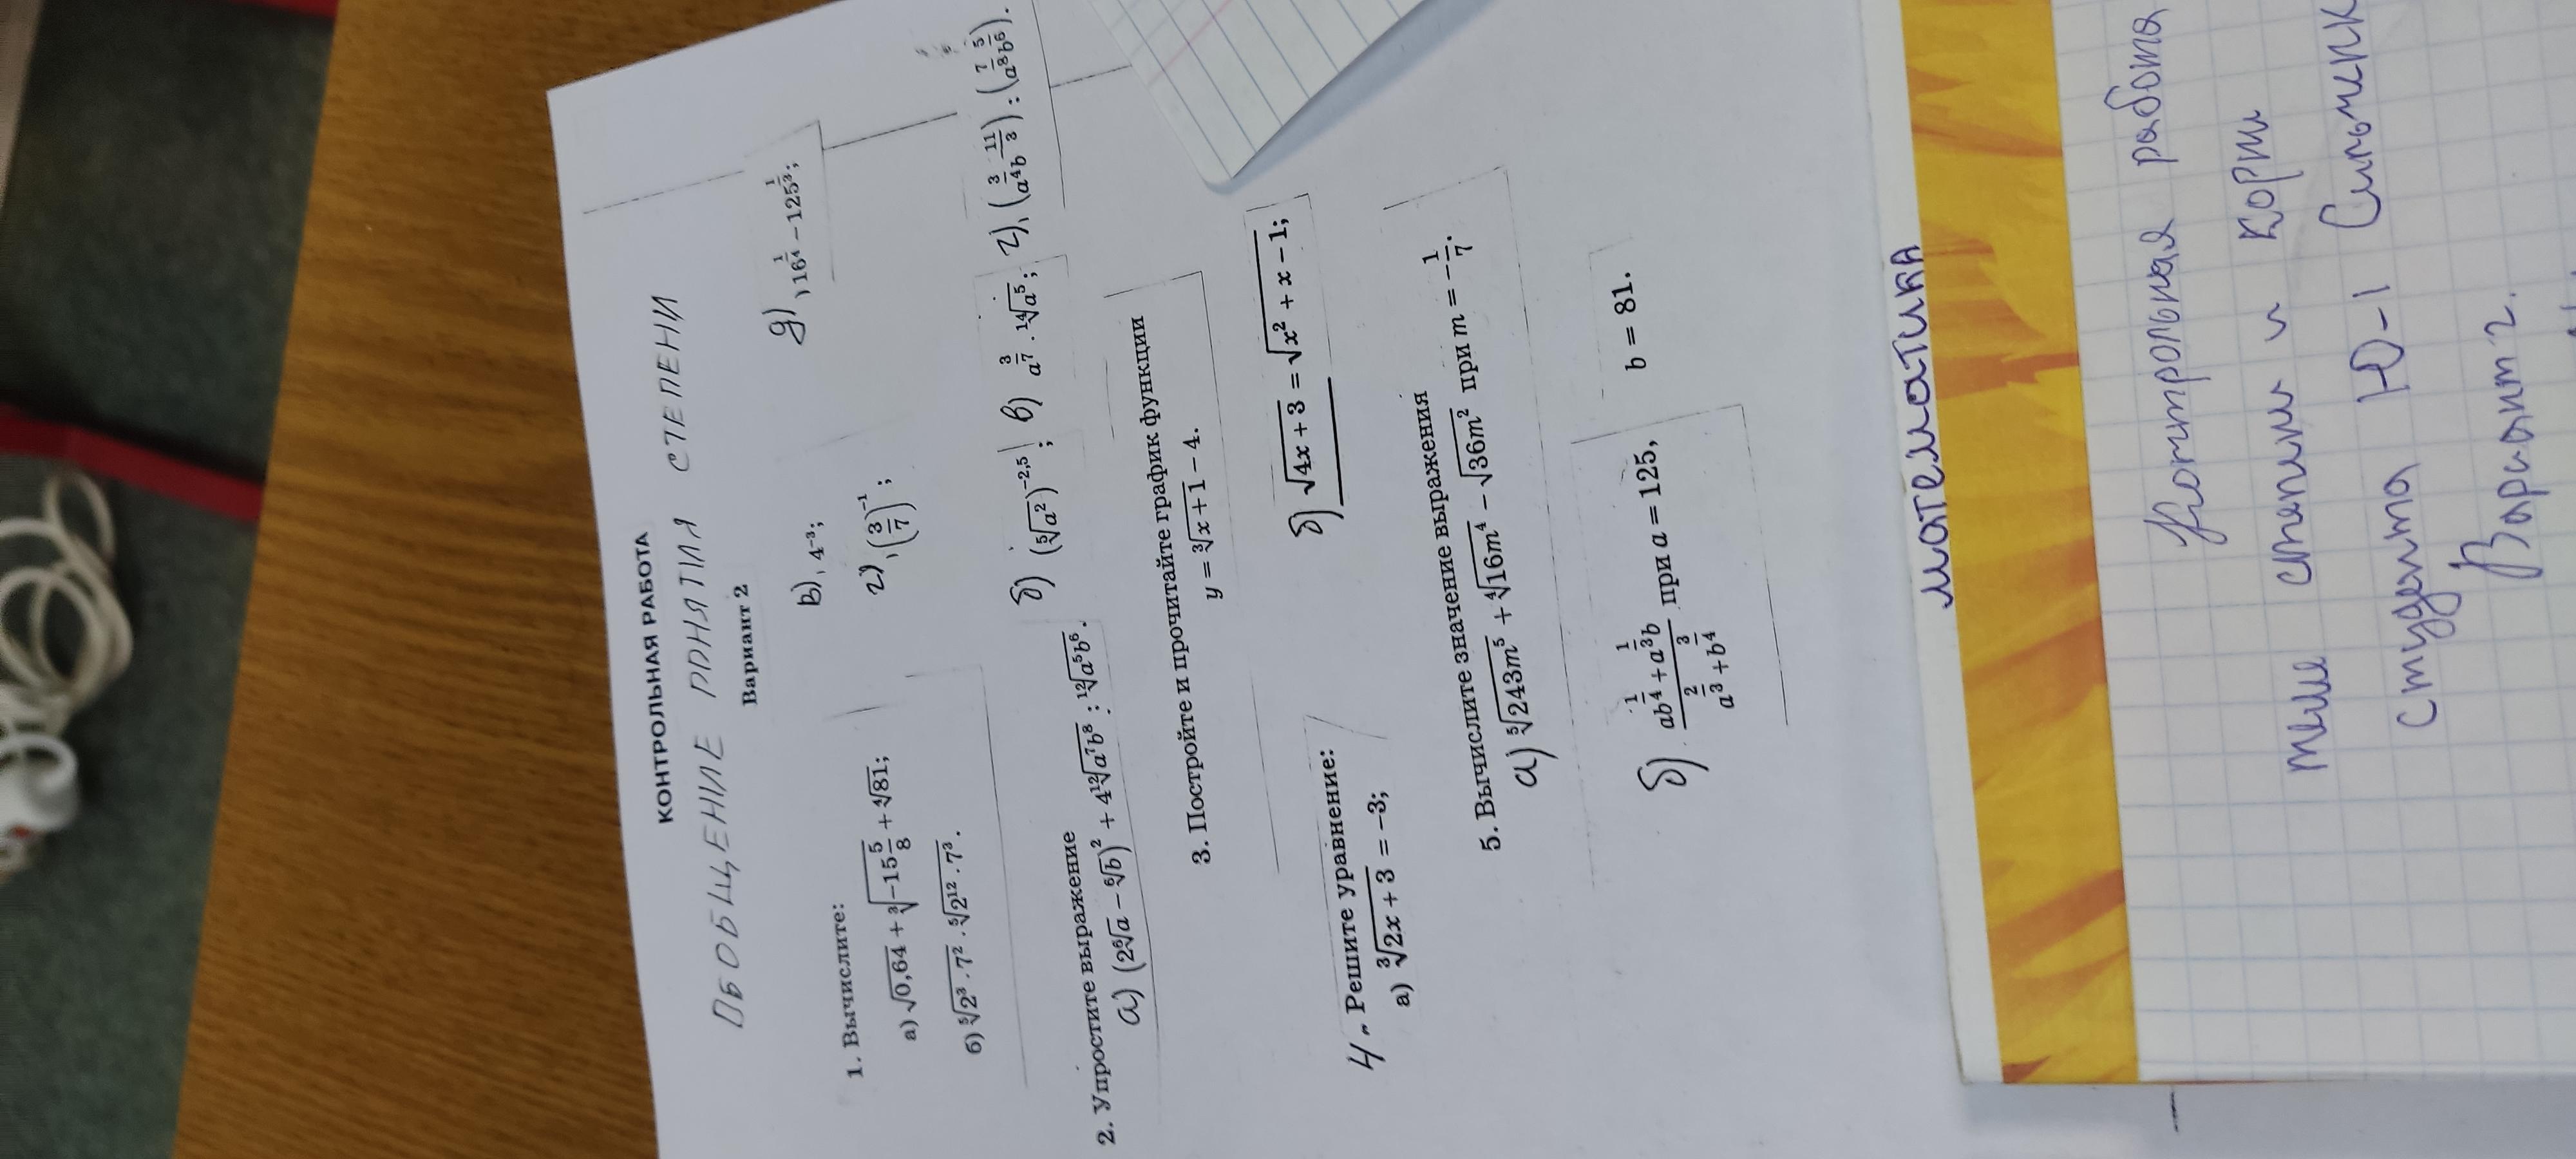 КОНТРОЛЬНАЯ РАБОТА
ОБОБЩЕНИЕ ПОНЯТИЯ СТЕПЕНИ
Вариант 2
1. Вычислите:
а) √0,64 + ∛(−15 5/8) + ∜81;
б) ⁵√(2³ · 7²) · ⁵√(2¹² · 7³).
в) 4⁻³;
г) (3/7)⁻¹;
д) 16^(1/4) − 125^(1/3);
2. Упростите выражение
а) (2⁶√a − ⁶√b)² + 4¹²√(a⁷b⁸) : ¹²√(a⁵b⁶).
б) (⁵√a²)^(−2,5);
в) a^(3/7) · ¹⁴√a⁵;
г) (a^(3/4)b^(11/3)) : (a^(7/8)b^(5/6)).
3. Постройте и прочитайте график функции
y = ∛(x+1) − 4.
4. Решите уравнение:
а) ∛(2x + 3) = −3;
б) √(4x + 3) = √(x² + x − 1);
5. Вычислите значение выражения
а) ⁵√(243m⁵) + ⁴√(16m⁴) − √(36m²) при m = −1/7.
б) (ab^(1/4) + a^(1/3)b)/(a^(2/3) + b^(3/4)) при a = 125, b = 81.
математика
Контрольная работа
теме степени и корни
студента Ю-1
Вариант 2.